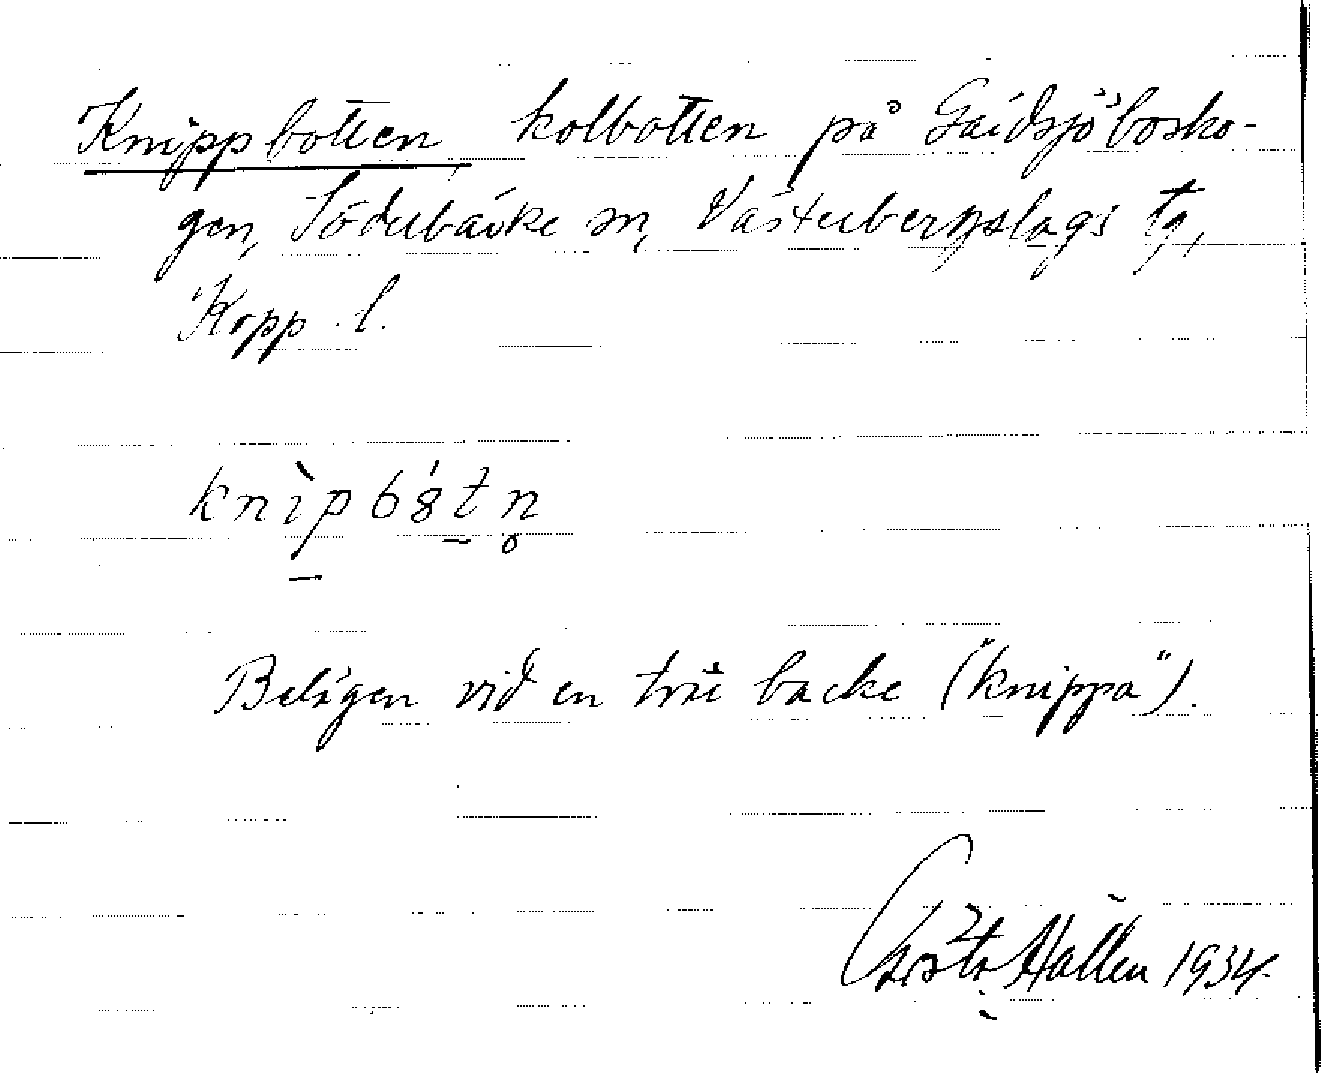 Knippbotten, kolbotten på Gäddsjöbosko-
gen, Söderbärke sn, Västerbergslags tg,
Kopp. l.
knìpbśtn̥
Belägen vid en "knippa").
Hallén 1934.